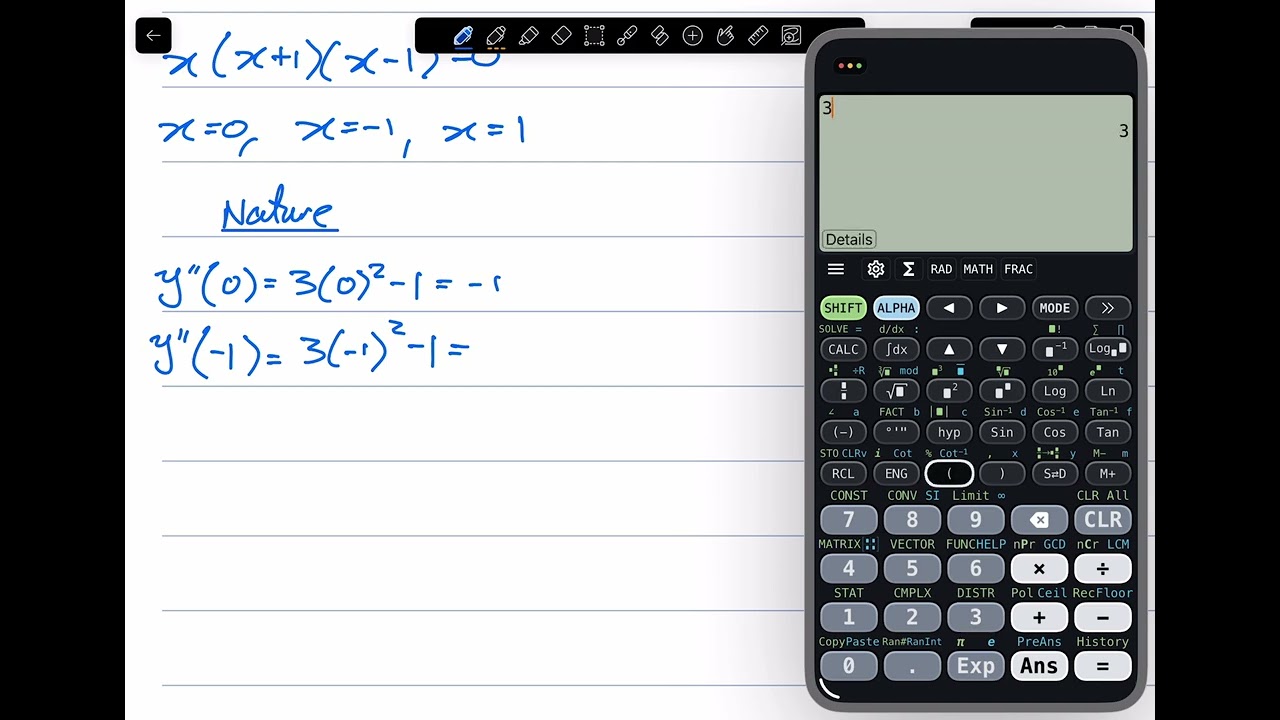 x(x+1)(x-1)=0
x=0, x=-1, x=1
Nature
y"(0)=3(0)²-1=-1
y"(-1)=3(-1)²-1=
3
3
Details
Σ RAD MATH FRAC
SHIFT ALPHA ◀ ▶ MODE >>
SOLVE = d/dx : ■! Σ Π
CALC ∫dx ▲ ▼ ■⁻¹ Log■
÷R mod ■³ 10■ e■ t
√■ ■² ■■ Log Ln
∠ a FACT b |■| c Sin⁻¹ d Cos⁻¹ e Tan⁻¹ f
(−) °'" hyp Sin Cos Tan
STO CLRv i Cot % Cot⁻¹ , x y M− m
RCL ENG ( ) S⇄D M+
CONST CONV SI Limit ∞ CLR All
7 8 9 CLR
MATRIX VECTOR FUNC HELP nPr GCD nCr LCM
4 5 6 × ÷
STAT CMPLX DISTR Pol Ceil Rec Floor
1 2 3 + −
Copy Paste Ran# RanInt π e PreAns History
0 . Exp Ans =